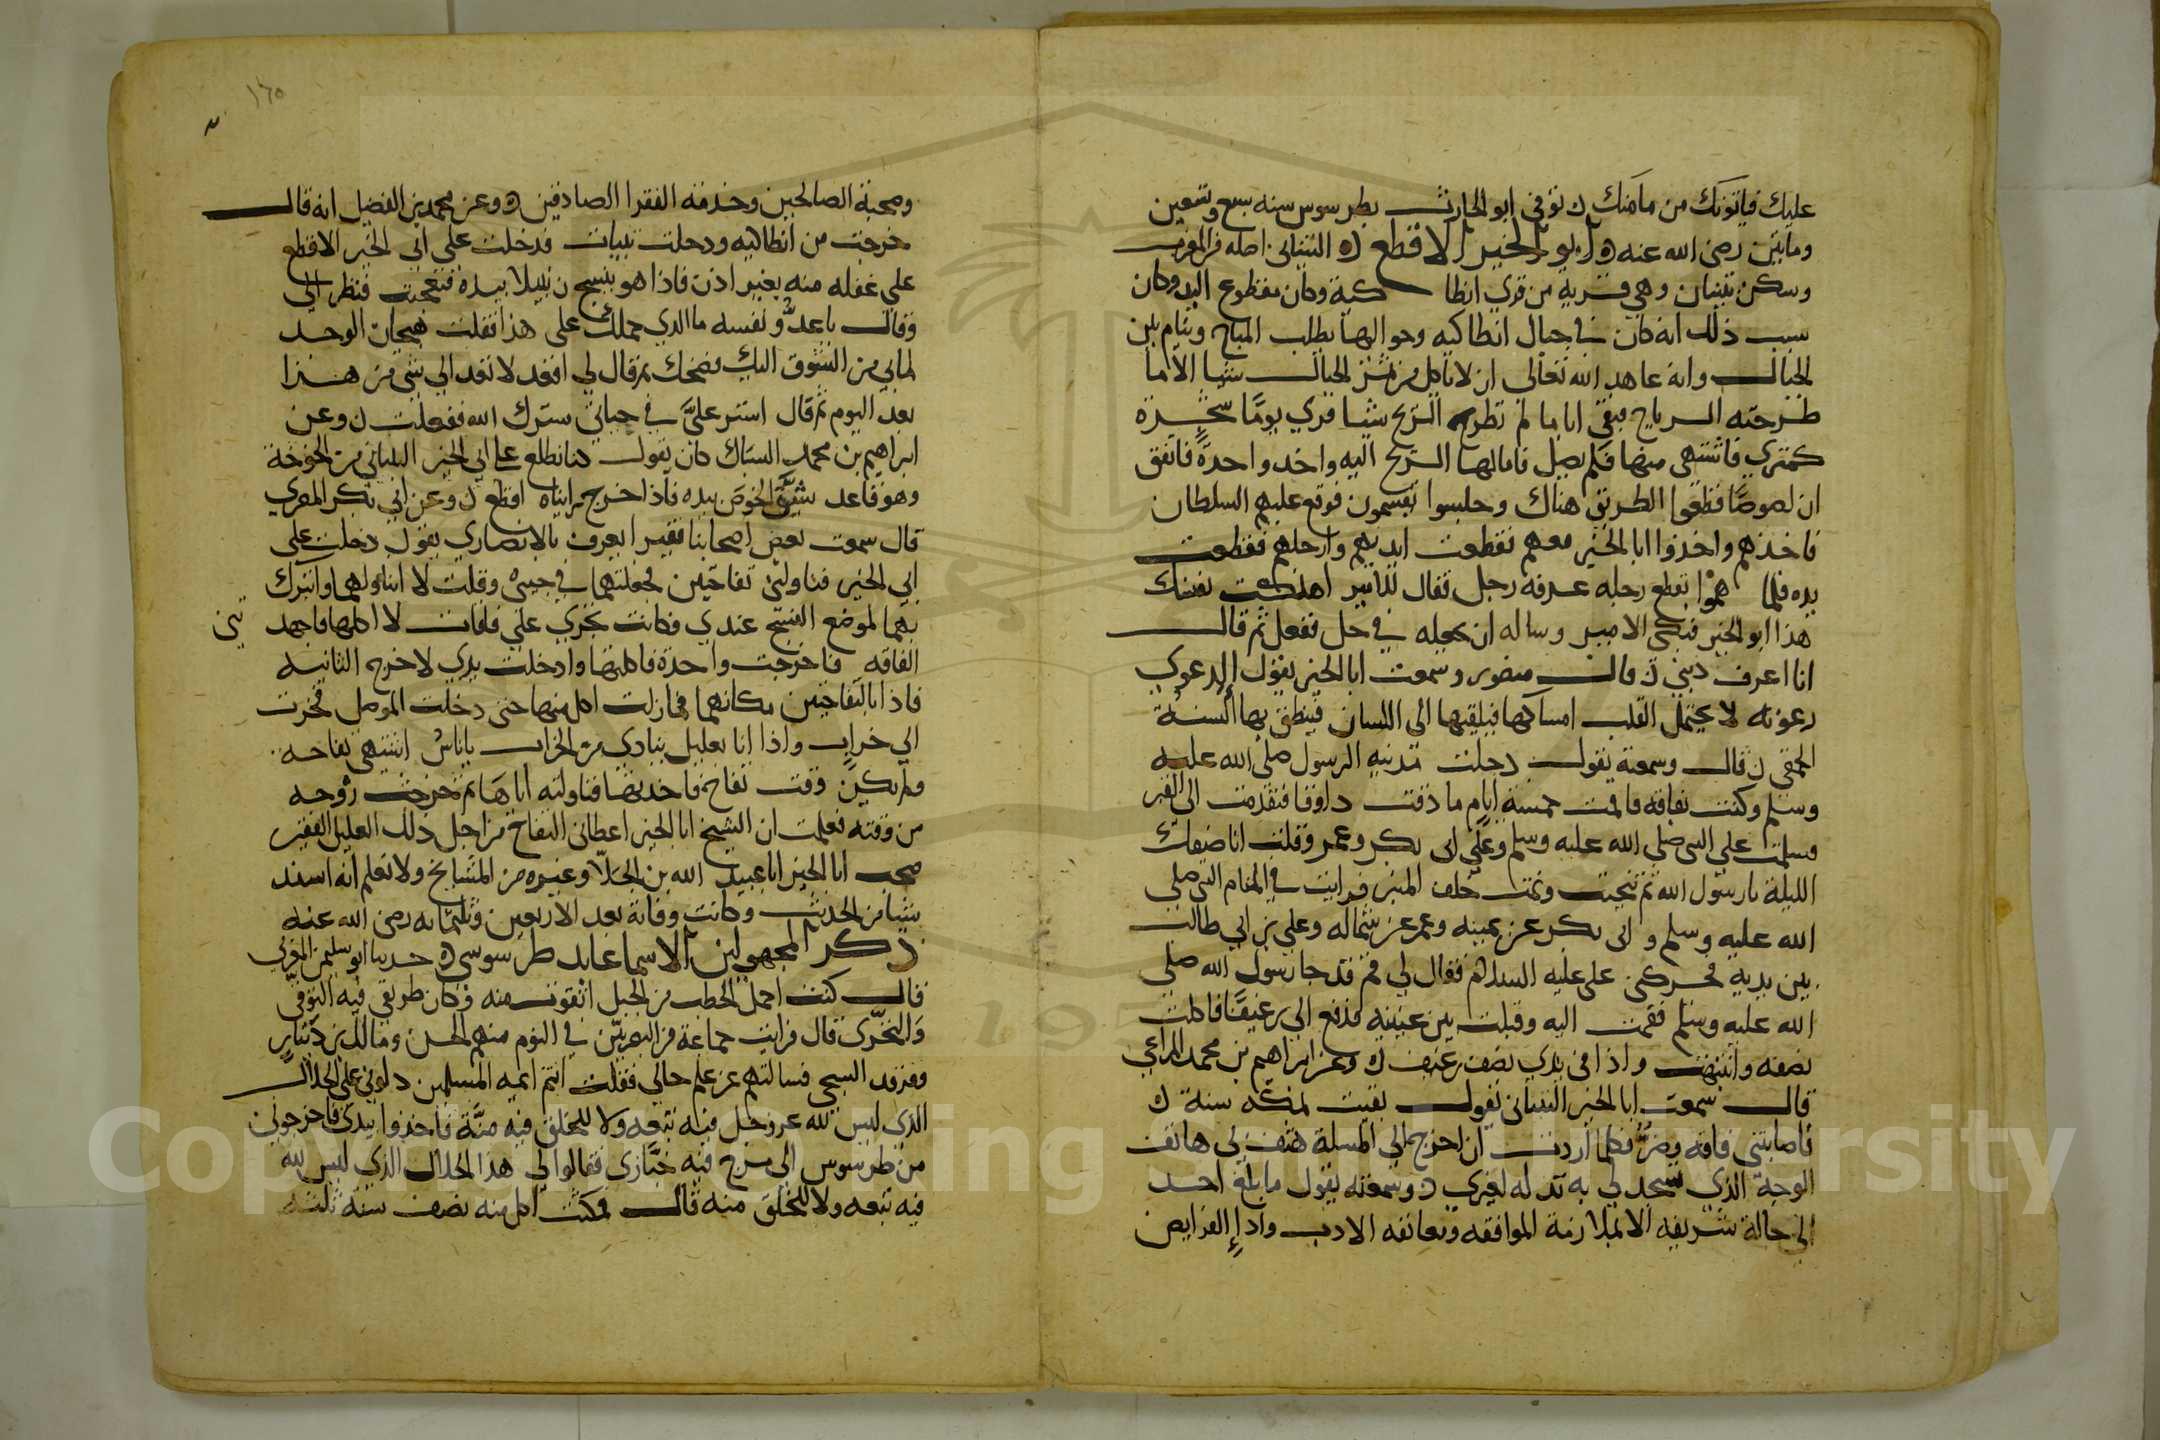 عليك فياتونك من مامنك ن توفي ابو الحارث بطرسوس سنه سبع وتسعين
وماتين رضي الله عنه ه ابو الخير الاقطع ه التيناتي اصله من المغرب
وسكن تينان وهي قريه من قري انطاكية وكان مقطوع اليد وكان
سبب ذلك انه كان في جبال انطاكيه وحواليها يطلب المباح وينام بين
الجبال وانه عاهد الله تعالى ان لا ياكل من ثمر الجبال شيا الا ما
طرحته الرياح فبقي اياما لم تطرح الريح شيا فري يوما شجرة
كمثري فاشتهى منها فلم يصل فامالها الريح اليه واخذ واحدة فاتفق
ان لصوصا قطعوا الطريق هناك وجلسوا يقسمون فوقع عليهم السلطان
فاخذهم واخذوا ابا الخير معهم فقطعت ايديهم وارجلهم فقطعت
يده فلما هموا بقطع رجله عرفه رجل فقال للامير اهلكت نفسك
هذا ابو الخير فبكى الامير وساله ان يجعله في حل ففعل ثم قال
انا اعرف ذنبي ن قال منصور وسمعت ابا الخير يقول الدعوي
رعونه لا يحتمل القلب امساكها فيلقيها الى اللسان فينطق بها السنة
الحمقي ن قال وسمعته يقول دخلت مدينه الرسول صلى الله عليه
وسلم وكنت بفاقه فاقمت خمسة ايام ما ذقت ذواقا فتقدمت الى القبر
وسلمت علي النبي صلي الله عليه وسلم وعلي ابي بكر وعمر وقلت انا ضيفك
الليلة يا رسول الله ثم تنحيت ونمت خلف المنبر فرايت في المنام النبي صلي
الله عليه وسلم وابي بكر عن يمينه وعمر عن شماله وعلي بن ابي طالب
بين يديه فحركني علي عليه السلام فقال لي قم قد جا رسول الله صلي
الله عليه وسلم فقمت اليه وقبلت بين عينيه فدفع الي رغيفا فاكلت
نصفه وانتبهت واذا في يدي نصف رغيف ن وعن ابراهيم بن محمد المراغي
قال سمعت ابا الخير التيناتي يقول بقيت بمكه سنة ن
فاصابتني فاقه وضر فكلما اردت ان اخرج الي المسلة هتف بي هاتف
الوجه الذي تسجد لي به تذله لغيري ن وسمعته يقول ما بلغ احد
الى حالة شريفه الا بملازمة الموافقه ومعانقه الادب واداء الفرايض
١٦٥
وصحبة الصالحين وخدمة الفقرا الصادقين ه وعن محمد بن الفضل انه قال
خرجت من انطاكيه ودخلت تينات فدخلت علي ابي الخير الاقطع
علي غفله منه بغير اذن فاذا هو ينسج زنبيلا بيده فتعجبت فنظر الي
وقال يا عدو نفسه ما الذي حملك على هذا فقلت هيجان الوجد
لما بي من الشوق اليك فضحك ثم قال لي اقعد لا تعد الي شي من هذا
بعد اليوم ثم قال استر علي في حياتي سترك الله ففعلت ن وعن
ابراهيم بن محمد السباك كان يقول كنا نطلع علي ابي الخير التيناتي من الخوخة
وهو قاعد يشق الخوص بيده فاذا خرج رايناه اقطع ن وعن ابي بكر المصري
قال سمعت بعض اصحابنا فقيرا يعرف بالانصاري يقول دخلت على
ابي الخير فناولني تفاحتين فجعلتهما في جيبي وقلت لا اتناولهما واتبرك
بهما لموضع الشيخ عندي فكانت تجري علي فاقات لا اكلها فاجهدتني
الفاقه فاخرجت واحدة فاكلتها وادخلت يدي لاخرج الثانيه
فاذا بالتفاحتين مكانهما فما زلت اكل منها حتى دخلت الموصل فجزت
الي خراب واذا انا بعليل ينادي من الخراب يا ناس اشتهى تفاحه
ولم يكن وقت تفاح فاخذتها فناولته اياها ثم خرجت روحه
من وقته فعلمت ان الشيخ ابا الخير اعطاني التفاح من اجل ذلك العليل الفقير
صحب ابا الخير ابا عبيد الله بن الجلا وغيره من المشايخ ولا تعلم انه اسند
شيا من الحديث وكانت وفاته بعد الاربعين وثلثمايه رضي الله عنه
ذكر المجهولين الاسما عابد طرسوسي ه حدثنا ابو سليمن المغربي
قال كنت احمل الحطب من الجبل اتقوت منه وكان طريقي فيه التوقي
والتحري قال فرايت جماعة من البصريين في النوم منهم الحسن ومالك بن دينار
وفرقد السبخي فسالتهم عن علم حالي فقلت انتم ايمه المسلمين دلوني علي الحلال
الذي ليس لله عز وجل فيه تبعه ولا للخلق فيه منة فاخذوا بيدي فاخرجوني
من طرسوس الى مرج فيه خبازي فقالوا لي هذا الحلال الذي ليس لله
فيه تبعه ولا للخلق منه قال فمكثت اكل منه نصف سنة ثلثه
Copyright © King Saud University
195